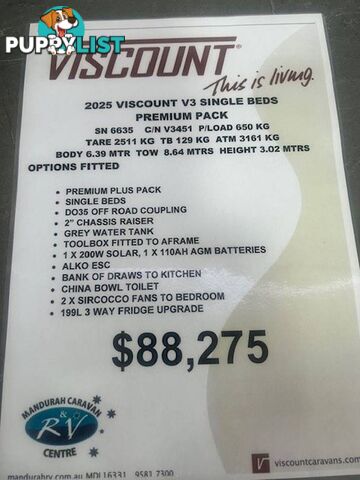 PUPPYLIST
VISCOUNT®
This is living.
2025 VISCOUNT V3 SINGLE BEDS
PREMIUM PACK
SN 6635 C/N V3451 P/LOAD 650 KG
TARE 2511 KG TB 129 KG ATM 3161 KG
BODY 6.39 MTR TOW 8.64 MTRS HEIGHT 3.02 MTRS
OPTIONS FITTED
• PREMIUM PLUS PACK
• SINGLE BEDS
• DO35 OFF ROAD COUPLING
• 2" CHASSIS RAISER
• GREY WATER TANK
• TOOLBOX FITTED TO AFRAME
• 1 X 200W SOLAR, 1 X 110AH AGM BATTERIES
• ALKO ESC
• BANK OF DRAWS TO KITCHEN
• CHINA BOWL TOILET
• 2 X SIRCOCCO FANS TO BEDROOM
• 199L 3 WAY FRIDGE UPGRADE
$88,275
MANDURAH CARAVAN
& RV
CENTRE
mandurahrv.com.au MDL16331 9581 7300
viscountcaravans.com